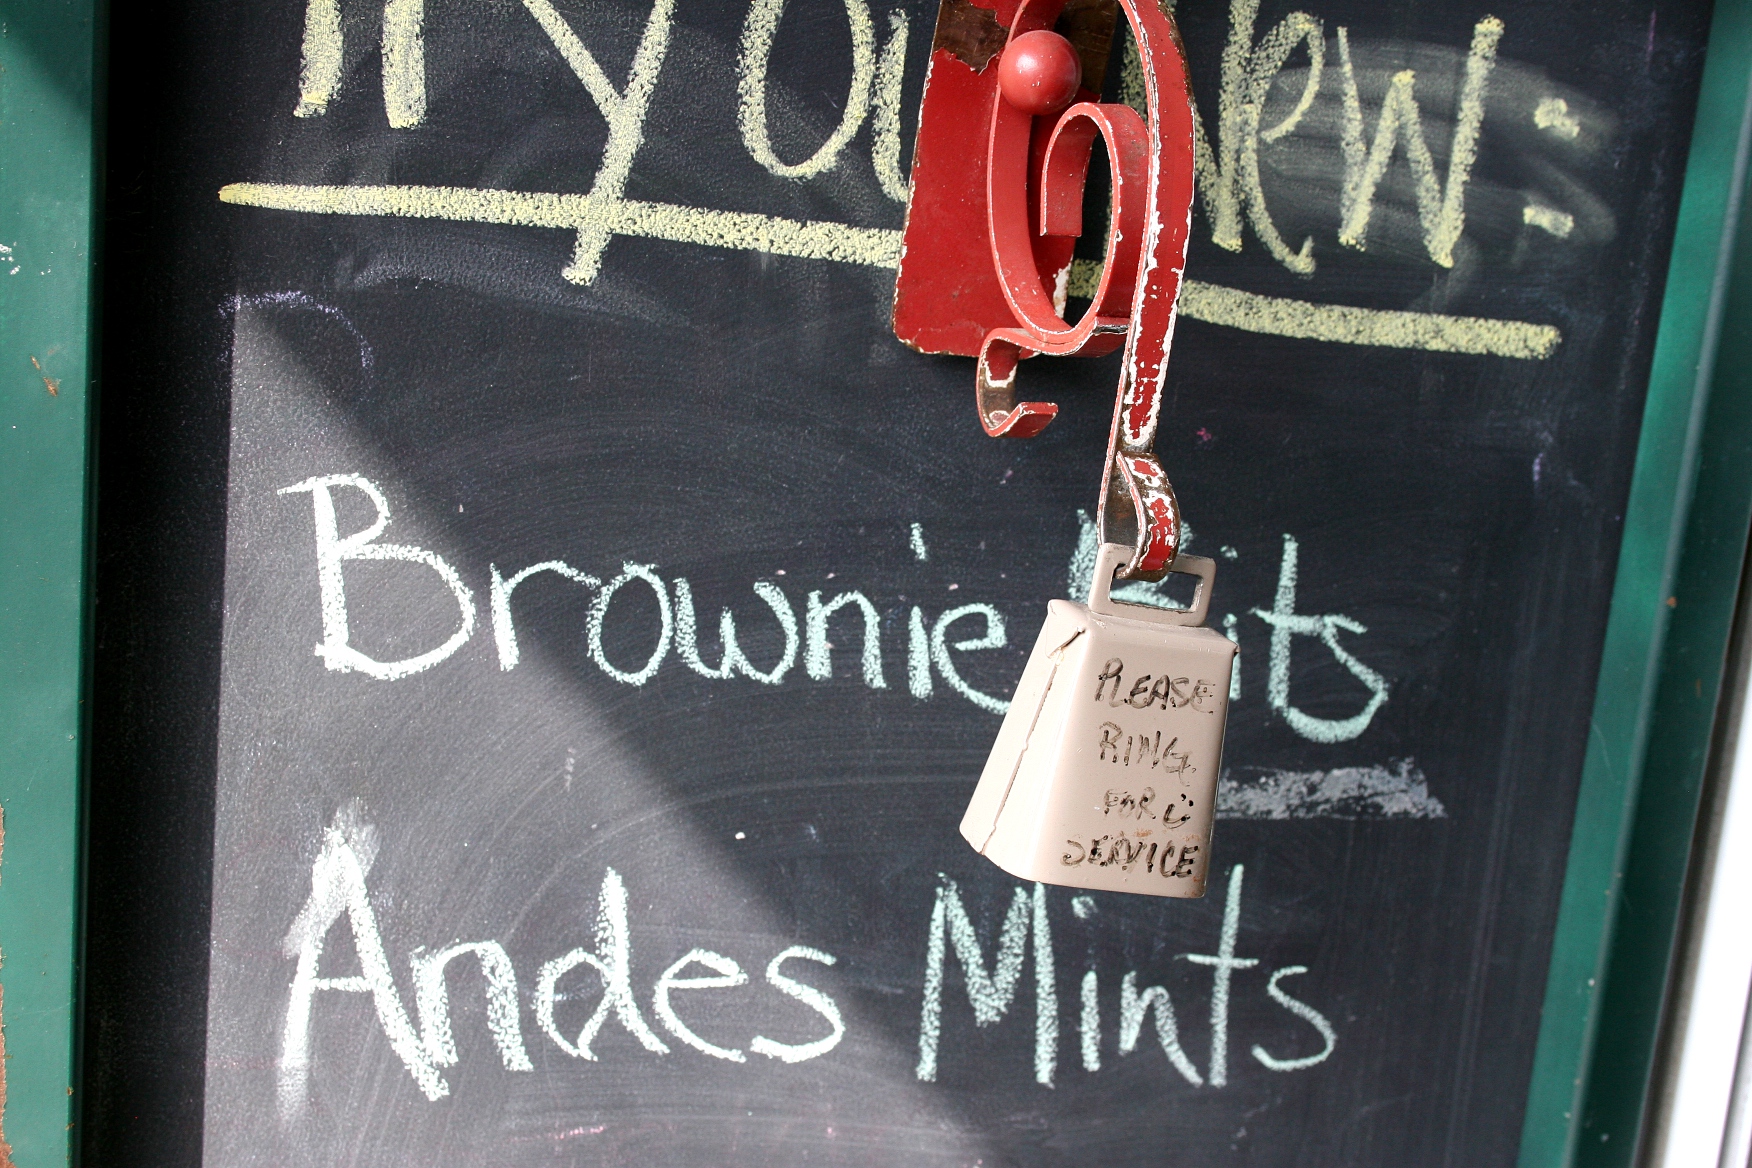 Try Our New:
Brownie Bits
Andes Mints
PLEASE
RING
FOR
SERVICE